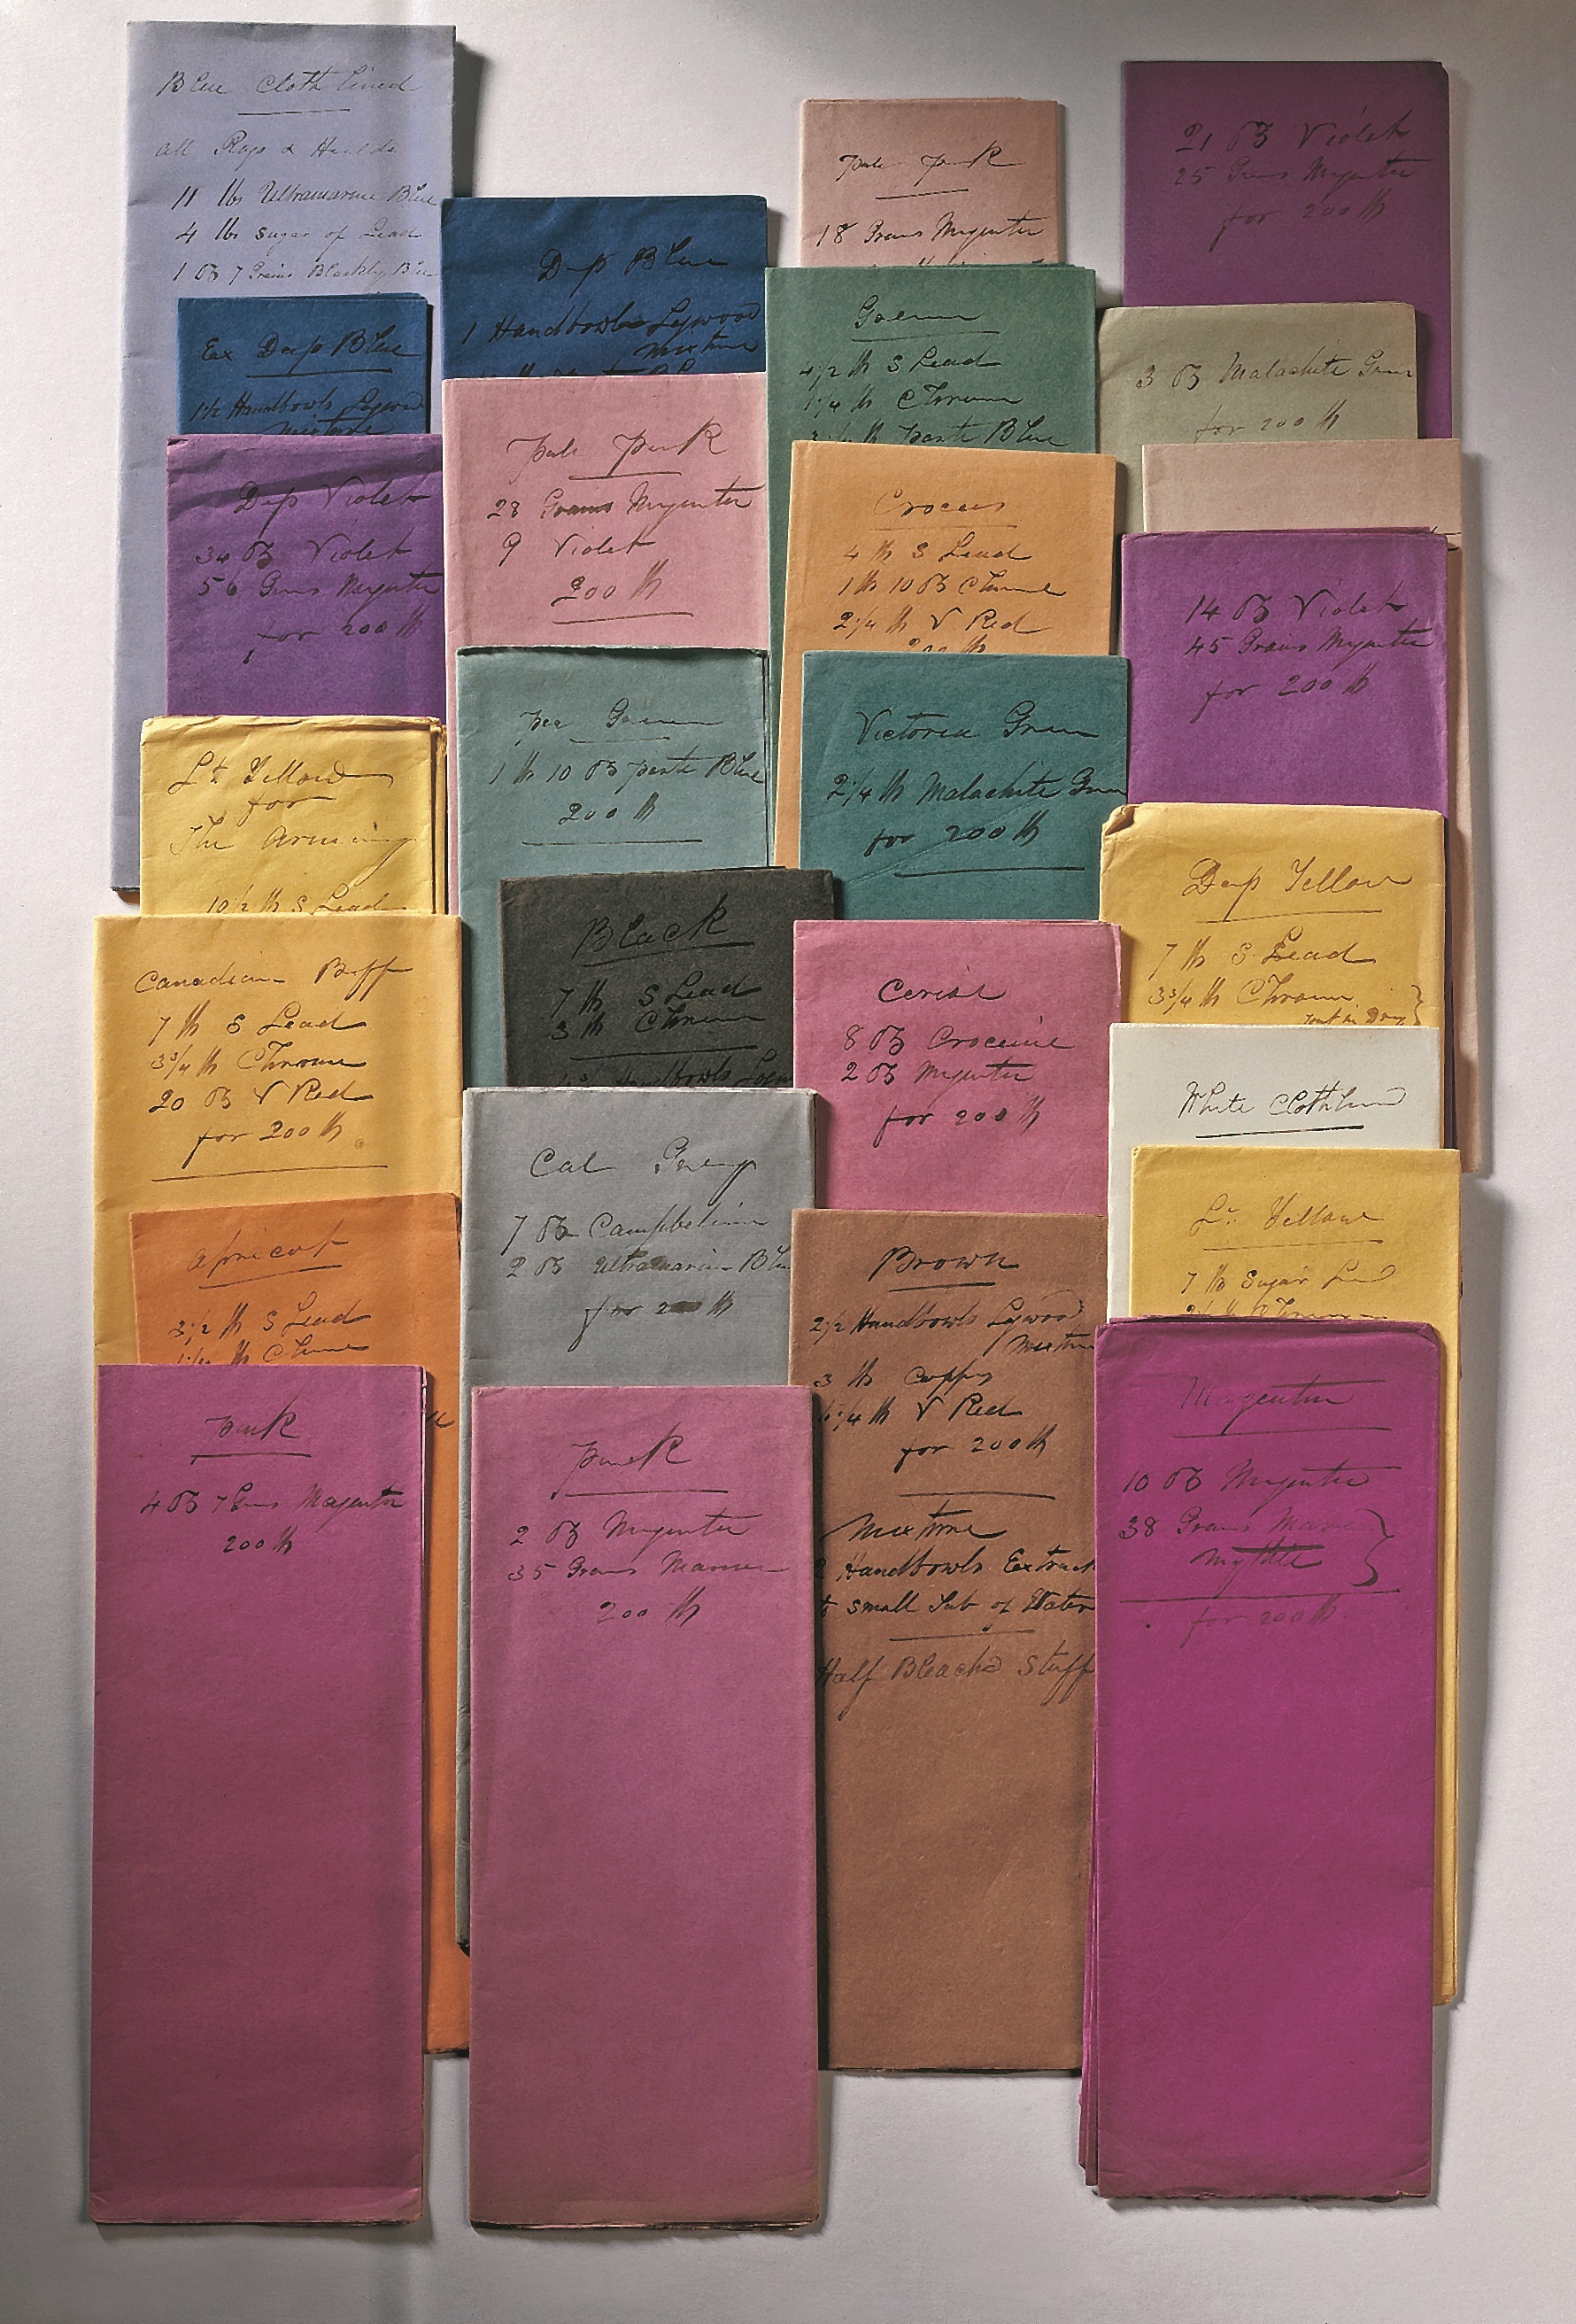 Blue Cloth Lined
all Rags &
11 lbs Ultramarine Blue
4 lbs Sugar of Lead
1 oz 7 Grains Blackly Blue
Ex Deep Blue
1 1/2 Handbowls Logwood
mixture
Deep Violet
34 oz Violet
56 Grns Magenter
for 200 lb
Lt. Yellow
for
The
10 1/2 lb S Lead
Canadian Buff
7 lb S Lead
3 3/4 lb Chrome
20 oz V Red
for 200 lb
Apricot
3 1/2 lb S Lead
lb Chrome
Pink
4 oz 7 Grns Magenter
200 lb
Deep Blue
1 Handbowls Logwood
mixture
Pale Pink
28 Grains Magenter
9 Violet
200 lb
Pea Green
1 lb 10 oz paste Blue
200 lb
Black
7 lb S Lead
3 lb Chrome
Handbowls
Cal Grey
7 oz Campbeline
2 oz Ultramarine Blu
for 200 lb
Pink
2 oz Magenter
35 Grains
200 lb
Pale Pink
18 Grains Magenter
Green
4 1/2 lb S Lead
1 1/4 lb Chrome
lb paste Blue
Crocus
4 lb S Lead
1 lb 10 oz Chrome
2 1/4 lb V Red
200 lb
Victoria Green
2 1/4 lb Malachite Green
for 200 lb
Cerise
8 oz Croceine
2 oz Magenter
for 200 lb
Brown
2 1/2 Handbowls Logwood
Mixture
3 lb Coppys
1/4 lb V Red
for 200 lb
Mixture
2 Handbowls Extract
to Small Tub of Water
Half Bleachd Stuff
21 oz Violet
25 Grns Magenter
for 200 lb
3 oz Malachite Green
for 200 lb
14 oz Violet
45 Grains Magenter
for 200 lb
Deep Yellow
7 lb S Lead
3 3/4 lb Chrome
White Clothlined
Lt. Yellow
7 lb Sugar Led
Magenter
10 oz Magenter
38 Grains
for 200 lb